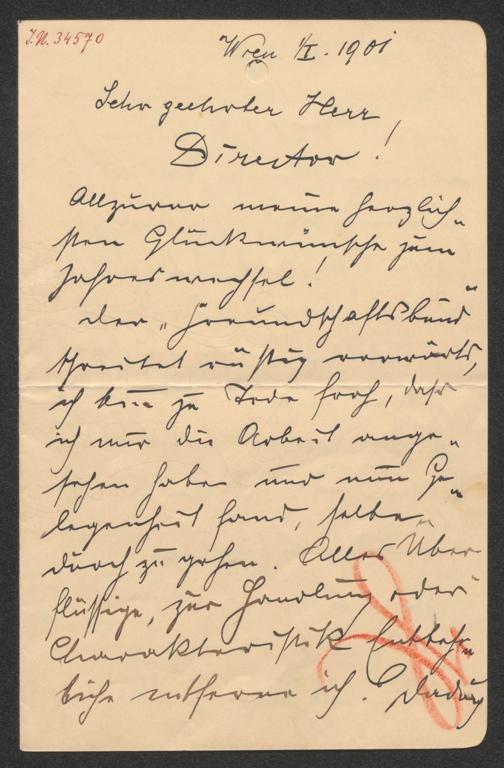 J.N. 34570
Wien 1/I. 1901
Sehr geehrter Herr
Director!
Allzuvor meine herzlich„
sten Glückwünsche zum
Jahreswechsel!
der „Freundschaftsbund“
schreitet rüstig vorwärts,
ich bin zu Tode froh, dass
ich mir die Arbeit ange„
sehen habe und nun Ge„
legenheit fand, selbe
durch zu gehen. Alles Über„
flüssige, zur Handlung oder
Charakteristik Entbehr„
liche entferne ich. Dadurch